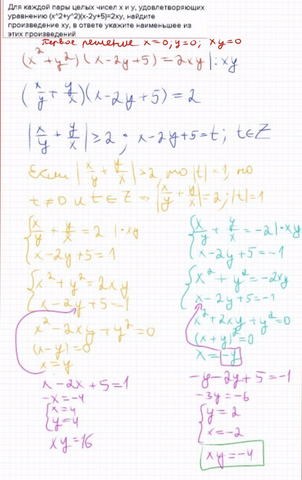 Для каждой пары целых чисел x и y, удовлетворяющих
уравнению (x^2+y^2)(x-2y+5)=2xy, найдите
произведение xy, в ответе укажите наименьшее из
этих произведений
Первое решение x=0; y=0; xy=0
(x²+y²)(x-2y+5)=2xy |:xy
(x/y + y/x)(x-2y+5)=2
|x/y + y/x| ≥ 2; x-2y+5=t; t∈Z
Если |x/y + y/x| > 2, то |t|=1, но
t≠0 и t∈Z ⇒ |x/y + y/x|=2; |t|=1
{ x/y + y/x = 2 |·xy
x-2y+5=1
{ x²+y²=2xy
x-2y+5=1
x²-2xy+y²=0
(x-y)=0
x=y
x-2x+5=1
-x=-4
{ x=4
y=4
xy=16
{ x/y + y/x = -2 |·xy
x-2y+5=-1
{ x²+y²=-2xy
x-2y+5=-1
x²+2xy+y²=0
(x+y)²=0
x=-y
-y-2y+5=-1
-3y=-6
{ y=2
x=-2
xy=-4